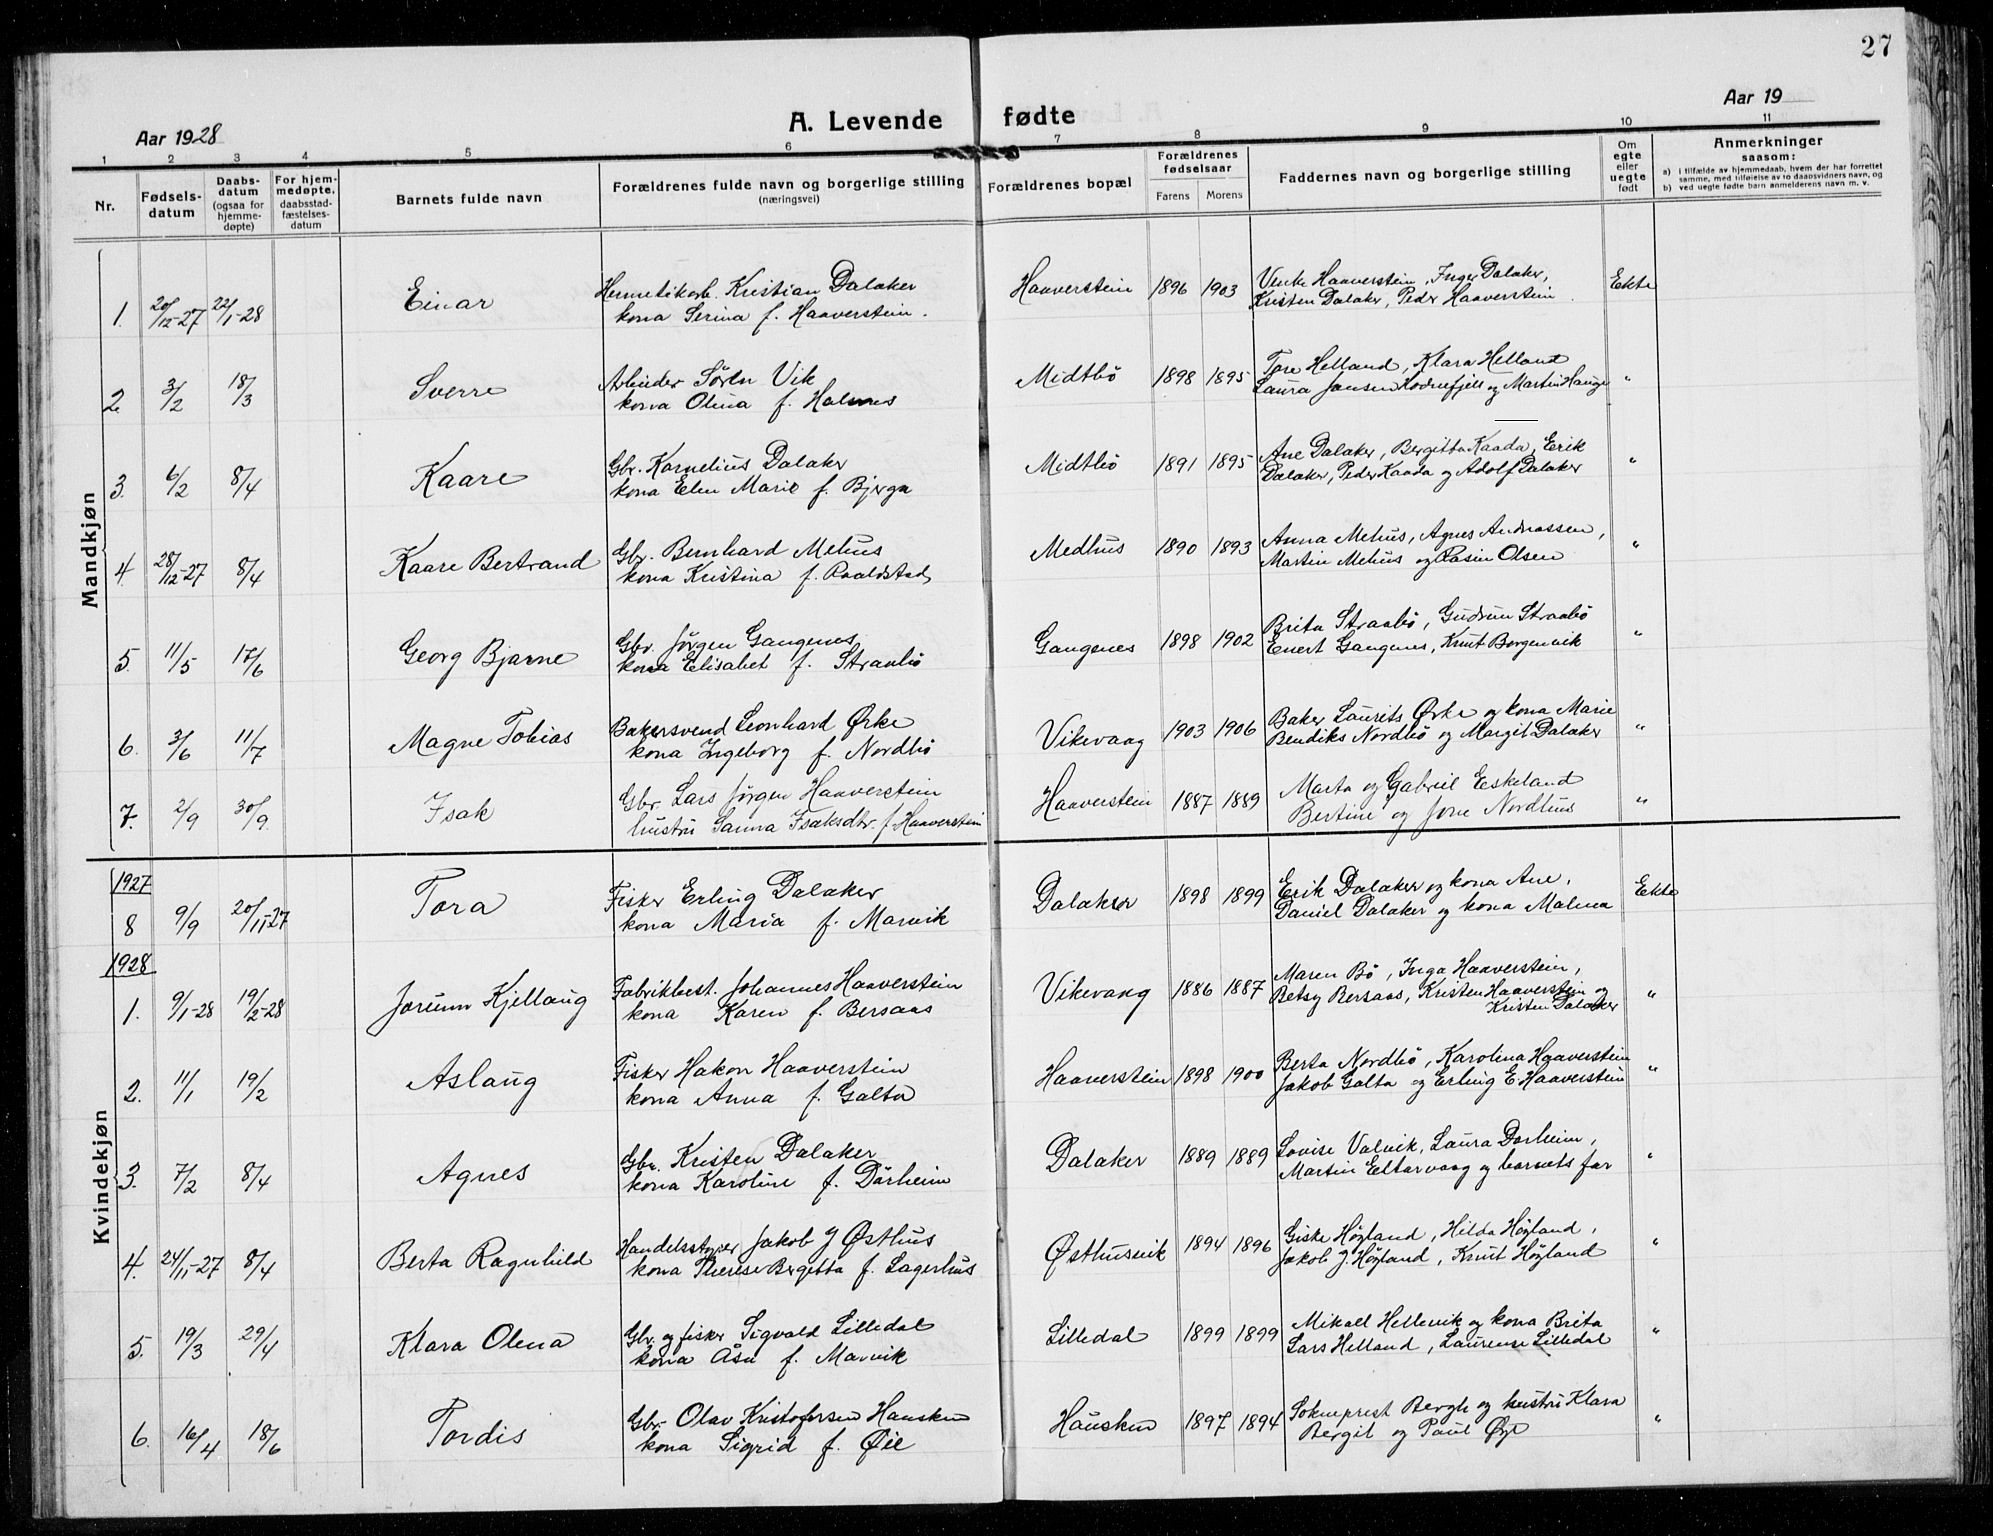 27
A. Levende fødte
Aar 1928
Aar 19
1 2 3 4 5 6 7 8 9 10 11
Nr.
Fødsels-datum
Daabs-datum (ogsaa for hjemme-døpte)
For hjem-medøpte, daabsstad-fæstelses-datum
Barnets fulde navn
Forældrenes fulde navn og borgerlige stilling (næringsvei)
Forældrenes bopæl
Forældrenes fødselsaar
Farens Morens
Faddernes navn og borgerlige stilling
Om egte eller uegte født
Anmerkninger saasom:
a) i tilfælde av hjemmedaab, hvem der har forrettet samme, med tilføielse av to daabsvidners navn, og
b) ved uegte fødte barn anmelderens navn m. v.
Mandkjøn
1. 20/12-27 22/1-28 Einar Hermetikarb. Kristian Dalaker Haaverstein 1896 1903 Venke Haaverstein, Inger Dalaker, Ekte
kona Serina f. Haaverstein. Kristen Dalaker, Peder Haaverstein.
2. 3/2 18/3 Sverre Arbeider Sören Vik Midtbö 1898 1895 Tore Helland, Klara Helland "
kona Olena f. Halsnes Laura Jansen Hodnefjell og Martin Hauge
3. 6/2 8/4 Kaare Gbr. Kornelius Dalaker Midtbö 1891 1895 Ane Dalaker, Bergitta Kaada, Erik "
kona Elen Marie f. Bjerga Dalaker, Peder Kaada og Adolf Dalaker
4. 28/12-27 8/4 Kaare Bertrand Gbr. Bernhard Mehus Medhus 1890 1893 Anna Mehus, Agnes Andreassen, "
kona Kristina f. Raaldstad Martin Mehus og Rasin Olsen
5. 11/5 17/6 Georg Bjarne Gbr. Jörgen Gangenes Gangenes 1898 1902 Brita Straabö, Gudrun Straabö "
kona Elisabet f. Straabö Enert Gangenes, Knut Borgenvik
6. 3/6 11/7 Magne Tobias Bakersvend Leonhard Ørke Vikevaag 1903 1906 Baker Laurits Ørke og kona Marie "
kona Ingeborg f. Nordbö Bendiks Nordbö og Margit Dalaker
7. 2/9 30/9 Isak Gbr. Lars Jörgen Haaverstein Haaverstein 1887 1889 Marta og Gabriel Eskeland "
hustru Sanna Isaksdtr. f. Haaverstein Bertine og Jone Nordhus
Kvindekjøn
1927
8 9/9 20/11-27 Tora Fisker Erling Dalaker Dalaker 1898 1899 Erik Dalaker og kona Ane, Ekte
kona Maria f. Marvik Daniel Dalaker og kona Malena
1928
1. 9/1-28 19/2-28 Jorunn Kjellaug Fabrikbest. Johannes Haaverstein Vikevaag 1886 1887 Maren Bö, Inga Haaverstein, "
kona Karen f. Bersaas Betsy Bersaas, Kristen Haaverstein og
Kristen Dalaker
2. 11/1 19/2 Aslaug Fisker Hakon Haaverstein Haaverstein 1898 1900 Berta Nordbö, Karolina Haaverstein "
kona Anna f. Galta Jakob Galta og Erling E Haaverstein
3. 7/2 8/4 Agnes Gbr. Kristen Dalaker Dalaker 1889 1889 Lovise Valvik, Laura Dorheim, "
kona Karoline f. Dörheim Martin Eltarvaag og barnets far
4. 24/11-27 8/4 Berta Ragnhild Jakob J Østhus Østhusvik 1894 1896 Giske Höyland, Hilda Höyland, "
kona Therese Bergitta f. Lagerhus Jakob J. Höyland, Knut Höyland
5. 19/3 29/4 Klara Olena Gbr. og fisker Sigvald Lilledal Lilledal 1899 1899 Mikael Hellevik og kona Brita "
kona Åsa f. Marvik Lars Helland, Laurense Lilledal
6. 16/4 18/6 Tordis Gbr. Olav Kristofersen Hausken Hausken 1897 1894 Sokneprest Bergh og hustru Klara "
kona Sigrid f. Øie Bergit og Paul Øye